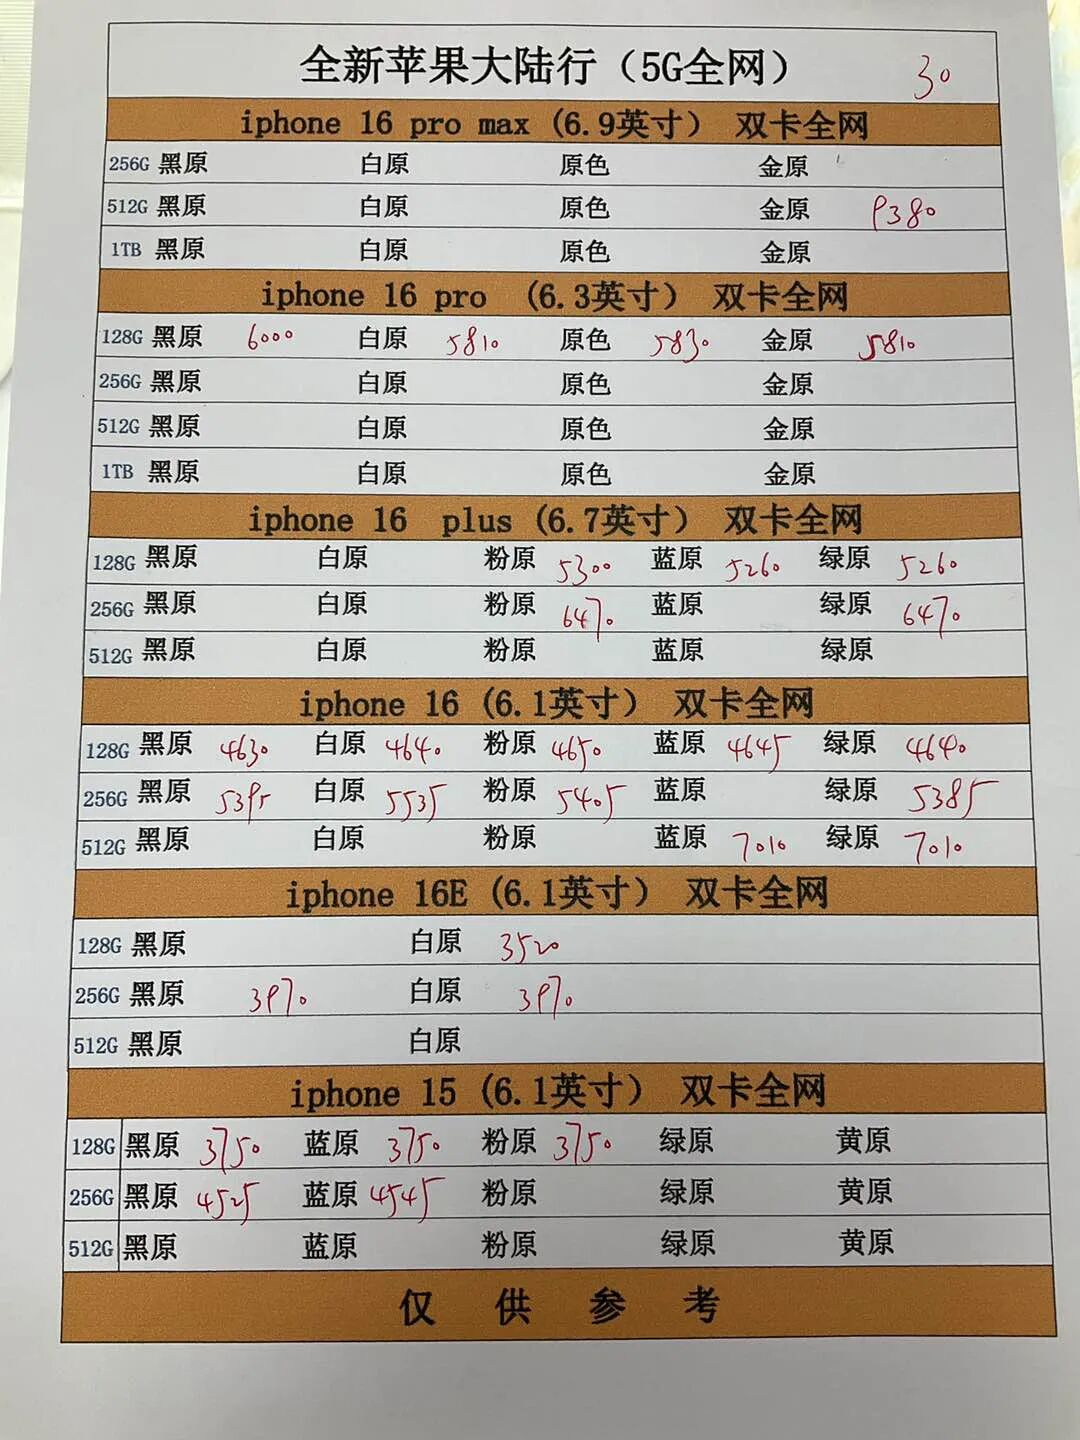 全新苹果大陆行（5G全网） 30
iphone 16 pro max (6.9英寸） 双卡全网
256G 黑原 白原 原色 金原
512G 黑原 白原 原色 金原 9380
1TB 黑原 白原 原色 金原
iphone 16 pro (6.3英寸） 双卡全网
128G 黑原 6000 白原 5810 原色 5830 金原 5810
256G 黑原 白原 原色 金原
512G 黑原 白原 原色 金原
1TB 黑原 白原 原色 金原
iphone 16 plus (6.7英寸） 双卡全网
128G 黑原 白原 粉原 5300 蓝原 5260 绿原 5260
256G 黑原 白原 粉原 6470 蓝原 绿原 6470
512G 黑原 白原 粉原 蓝原 绿原
iphone 16 (6.1英寸） 双卡全网
128G 黑原 4630 白原 4640 粉原 4650 蓝原 4645 绿原 4640
256G 黑原 5395 白原 5535 粉原 5405 蓝原 绿原 5385
512G 黑原 白原 粉原 蓝原 7010 绿原 7010
iphone 16E (6.1英寸） 双卡全网
128G 黑原 白原 3520
256G 黑原 3970 白原 3970
512G 黑原 白原
iphone 15 (6.1英寸） 双卡全网
128G 黑原 3750 蓝原 3750 粉原 3750 绿原 黄原
256G 黑原 4525 蓝原 4545 粉原 绿原 黄原
512G 黑原 蓝原 粉原 绿原 黄原
仅供参考